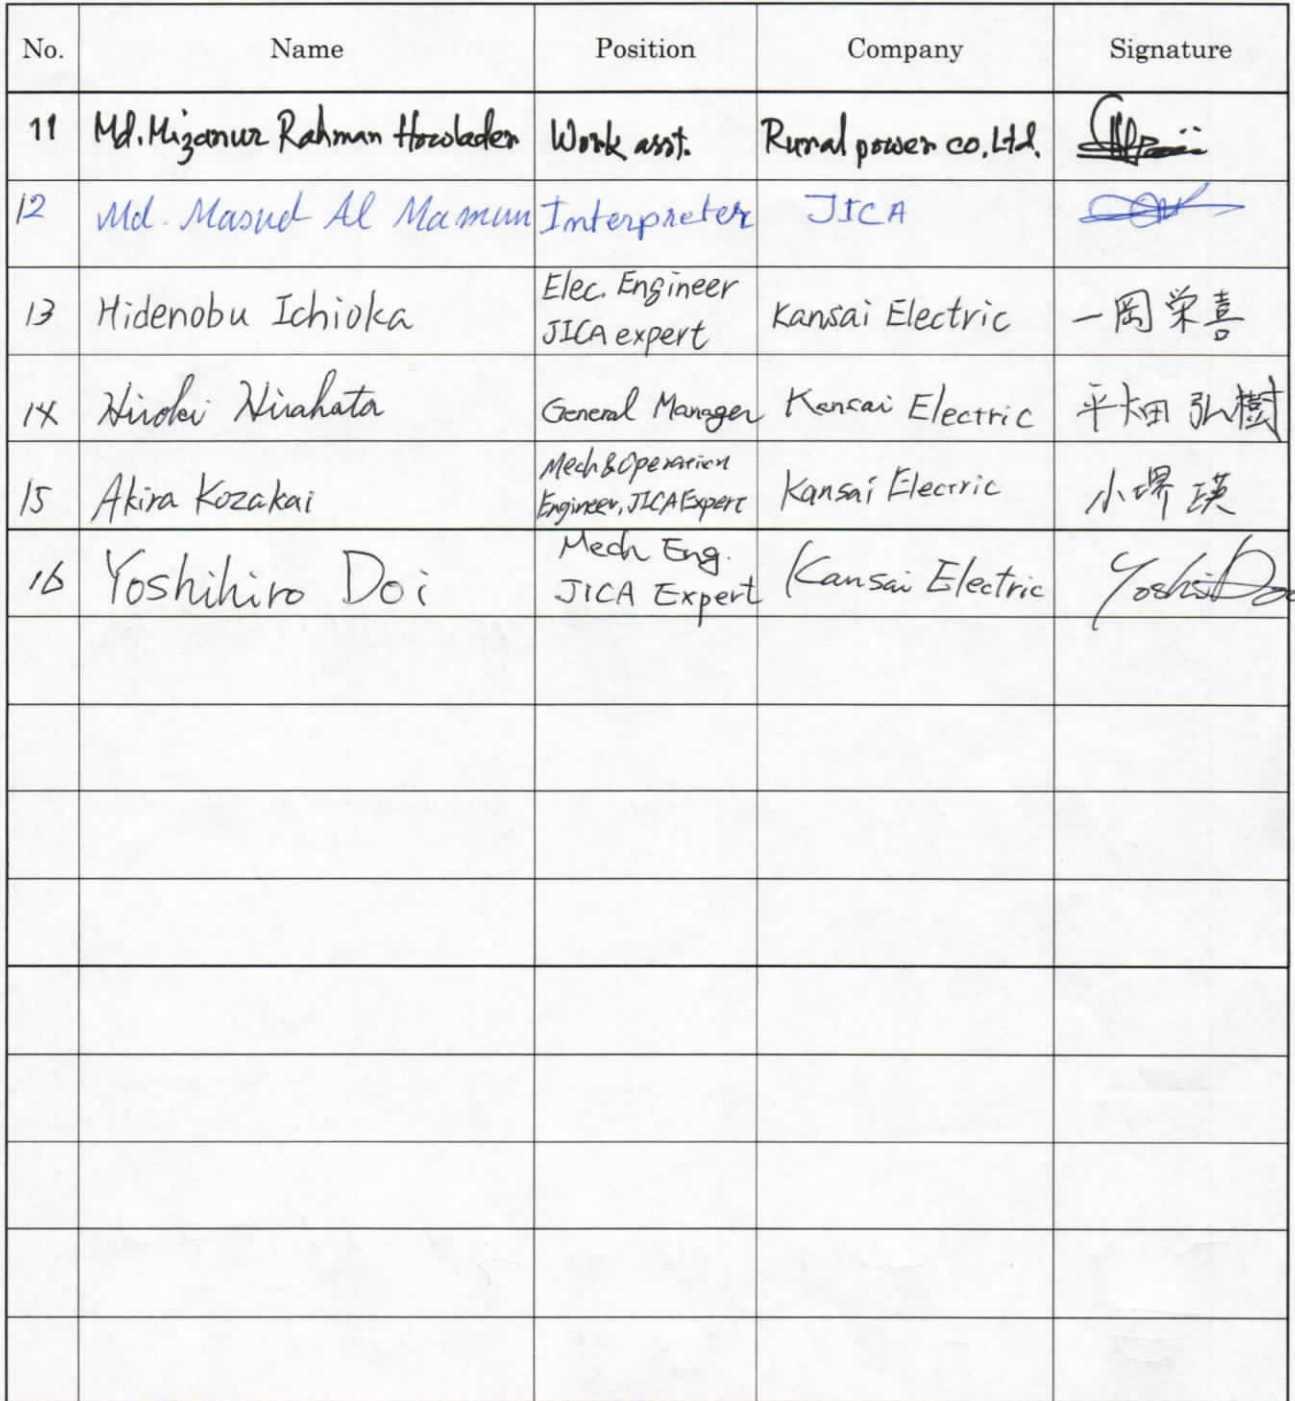 No. Name Position Company Signature
11 Md. Mizanur Rahman Howlader Work asst. Rural power co. Ltd.
12 Md. Masud Al Mamun Interpreter JICA
13 Hidenobu Ichioka Elec. Engineer
JICA expert Kansai Electric 一岡栄喜
14 Hiroki Hirahata General Manager Kansai Electric 平畑 弘樹
15 Akira Kozakai Mech & Operation
Engineer, JICA Expert Kansai Electric 小堺 瑛
16 Yoshihiro Doi Mech Eng.
JICA Expert Kansai Electric Yoshi Doi